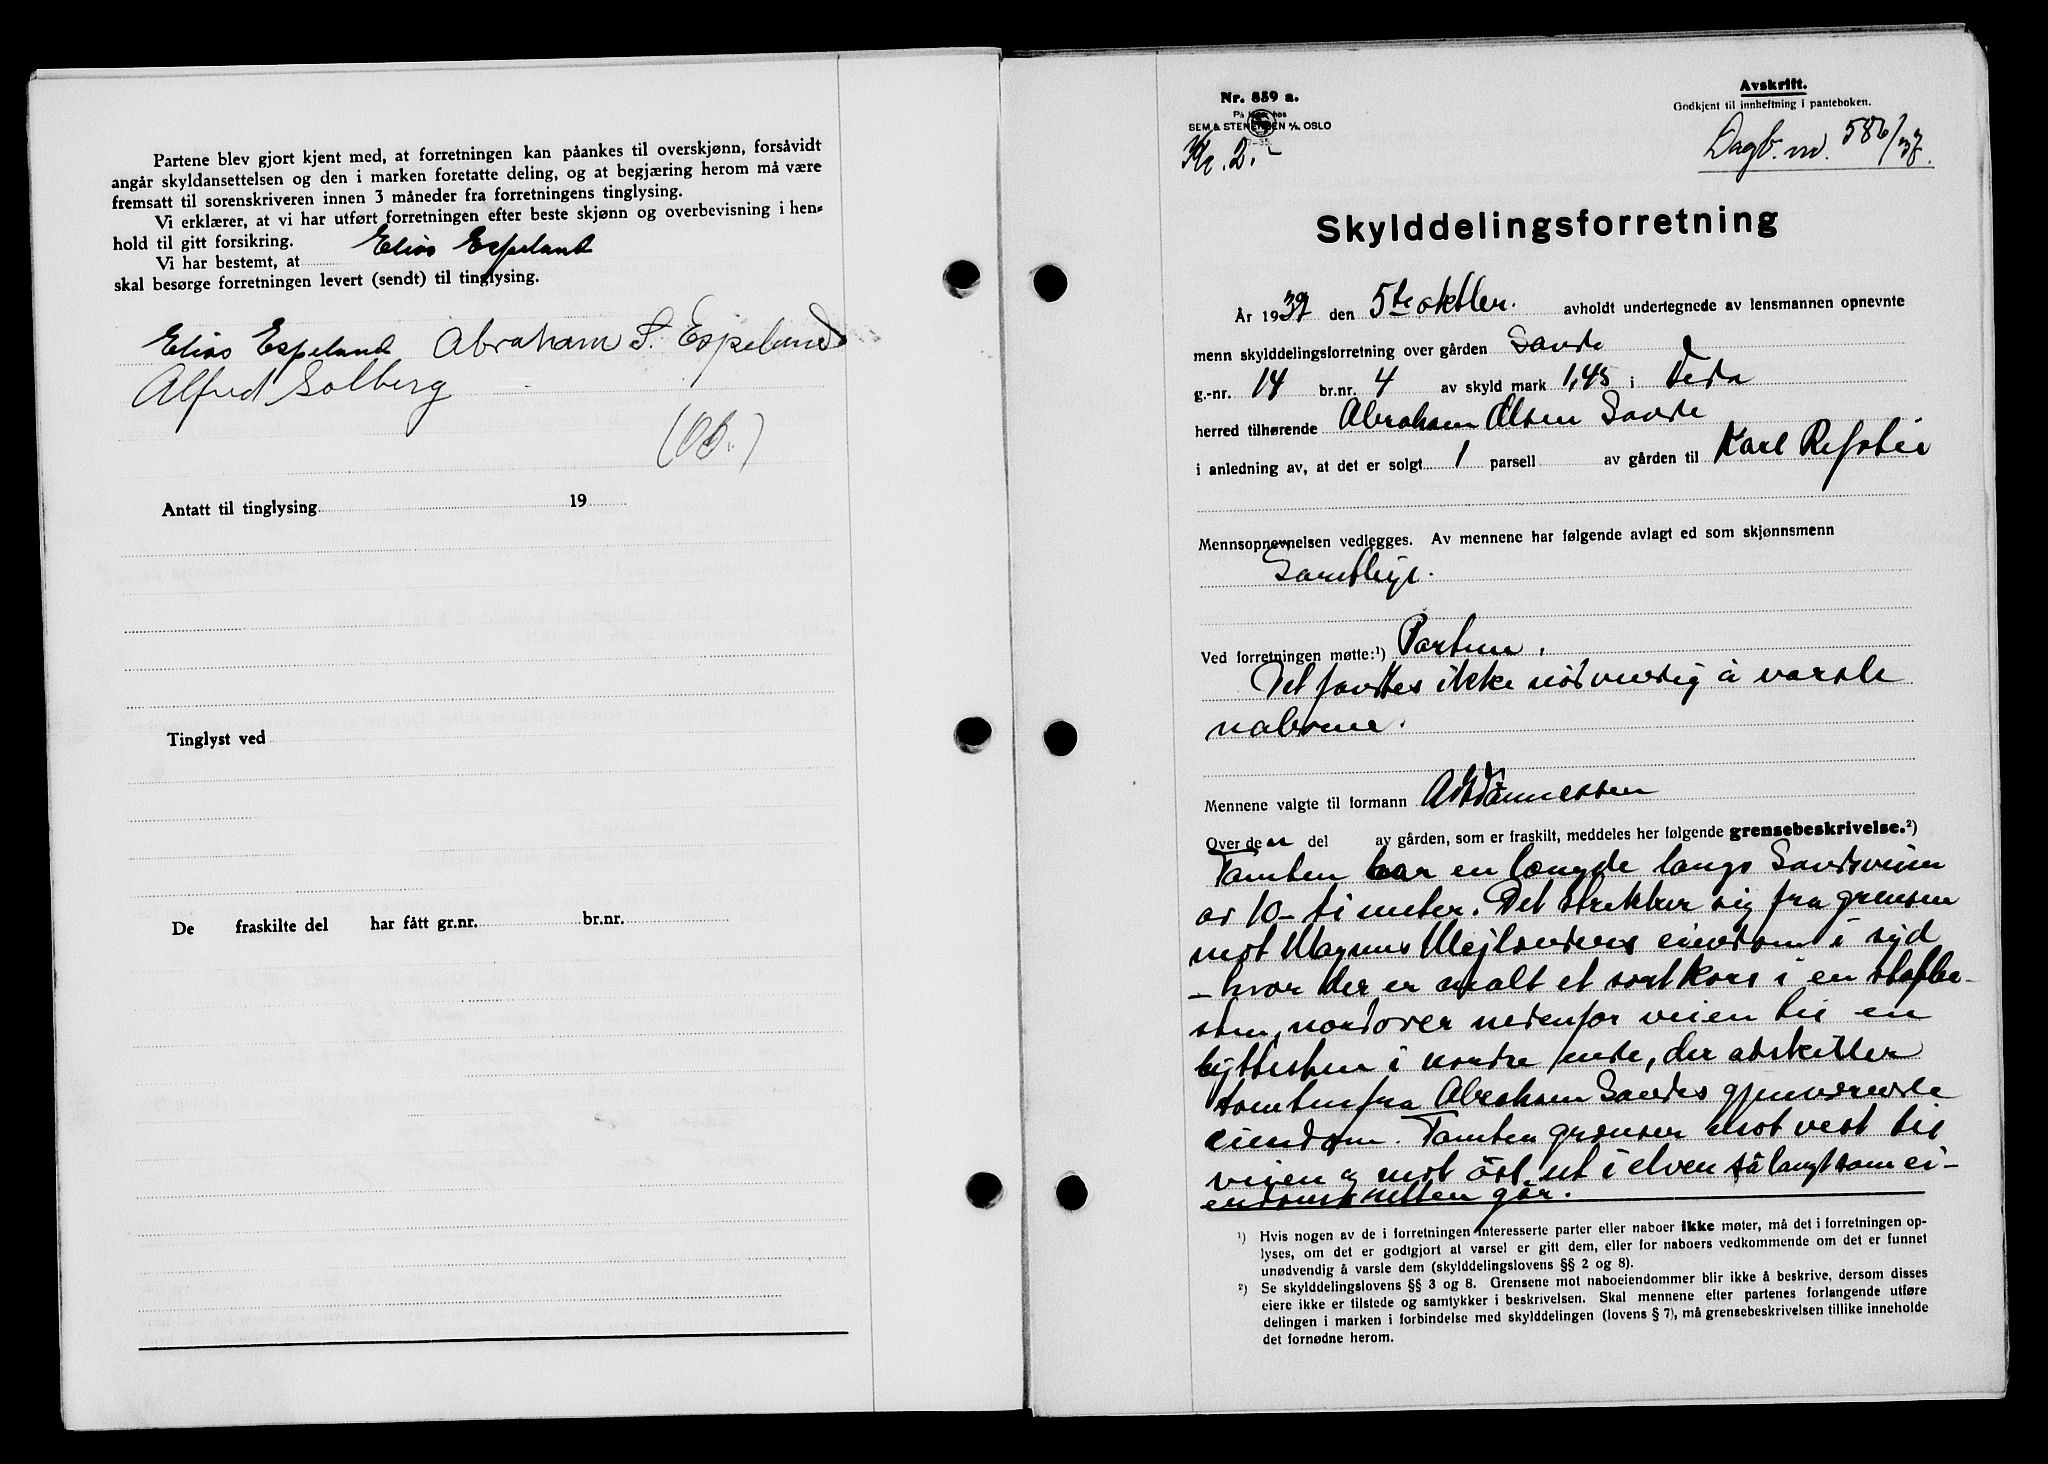 Partene blev gjort kjent med, at forretningen kan påankes til overskjønn, forsåvidt
angår skyldansettelsen og den i marken foretatte deling, og at begjæring herom må være
fremsatt til sorenskriveren innen 3 måneder fra forretningens tinglysing.
Vi erklærer, at vi har utført forretningen efter beste skjønn og overbevisning i hen-
hold til gitt forsikring.
Vi har bestemt, at Elias Espeland
skal besørge forretningen levert (sendt) til tinglysing.
Elias Espeland Abraham S. Espeland
Alfred Solberg
Antatt til tinglysing 19
Tinglyst ved
De fraskilte del har fått gr.nr. br.nr.
Nr. 859 a.
På lager hos
SEM & STENERSEN A/S, OSLO
Kr. 2.-
Avskrift.
Godkjent til innheftning i panteboken.
Dagb. nr. 586/37.
Skylddelingsforretning
År 1937 den 5te oktber. avholdt undertegnede av lensmannen opnevnte
menn skylddelingsforretning over gården Sande
g.-nr. 14 br.nr. 4 av skyld mark 1,45 i Feda
herred tilhørende Abraham Olsen Sande
i anledning av, at det er solgt 1 parsell av gården til Karl Refstie
Mennsopnevnelsen vedlegges. Av mennene har følgende avlagt ed som skjønnsmenn
Samtlige.
Ved forretningen møtte:¹) Partene.
Det fandtes ikke nødvendig å varsle
naboene.
Mennene valgte til formann
Over de en del av gården, som er fraskilt, meddeles her følgende grensebeskrivelse.²)
Tomten har en længde langs Sandsveien
av 10 - ti meter. Det strekker sig fra grensen
mot Magnus Mejlænders eiendom i syd
- hvor der er malt et sort kors i en stabbe-
sten, nordover nedenfor veien til en
byttesten i nordre ende, der adskiller
tomten fra Abraham Sandes gjenværende
eiendom. Tomten grænser mot vest til
veien og mot øst ut i elven så langt som ei-
endomsretten går.
¹) Hvis nogen av de i forretningen interesserte parter eller naboer ikke møter, må det i forretningen op-
lyses, om det er godtgjort at varsel er gitt dem, eller for naboers vedkommende om det er funnet
unødvendig å varsle dem (skylddelingslovens §§ 2 og 8).
²) Se skylddelingslovens §§ 3 og 8. Grensene mot naboeiendommer blir ikke å beskrive, dersom disses
eiere ikke er tilstede og samtykker i beskrivelsen. Skal mennene efter partenes forlangende utføre
delingen i marken i forbindelse med skylddelingen (lovens § 7), må grensebeskrivelsen tillike inneholde
det fornødne herom.